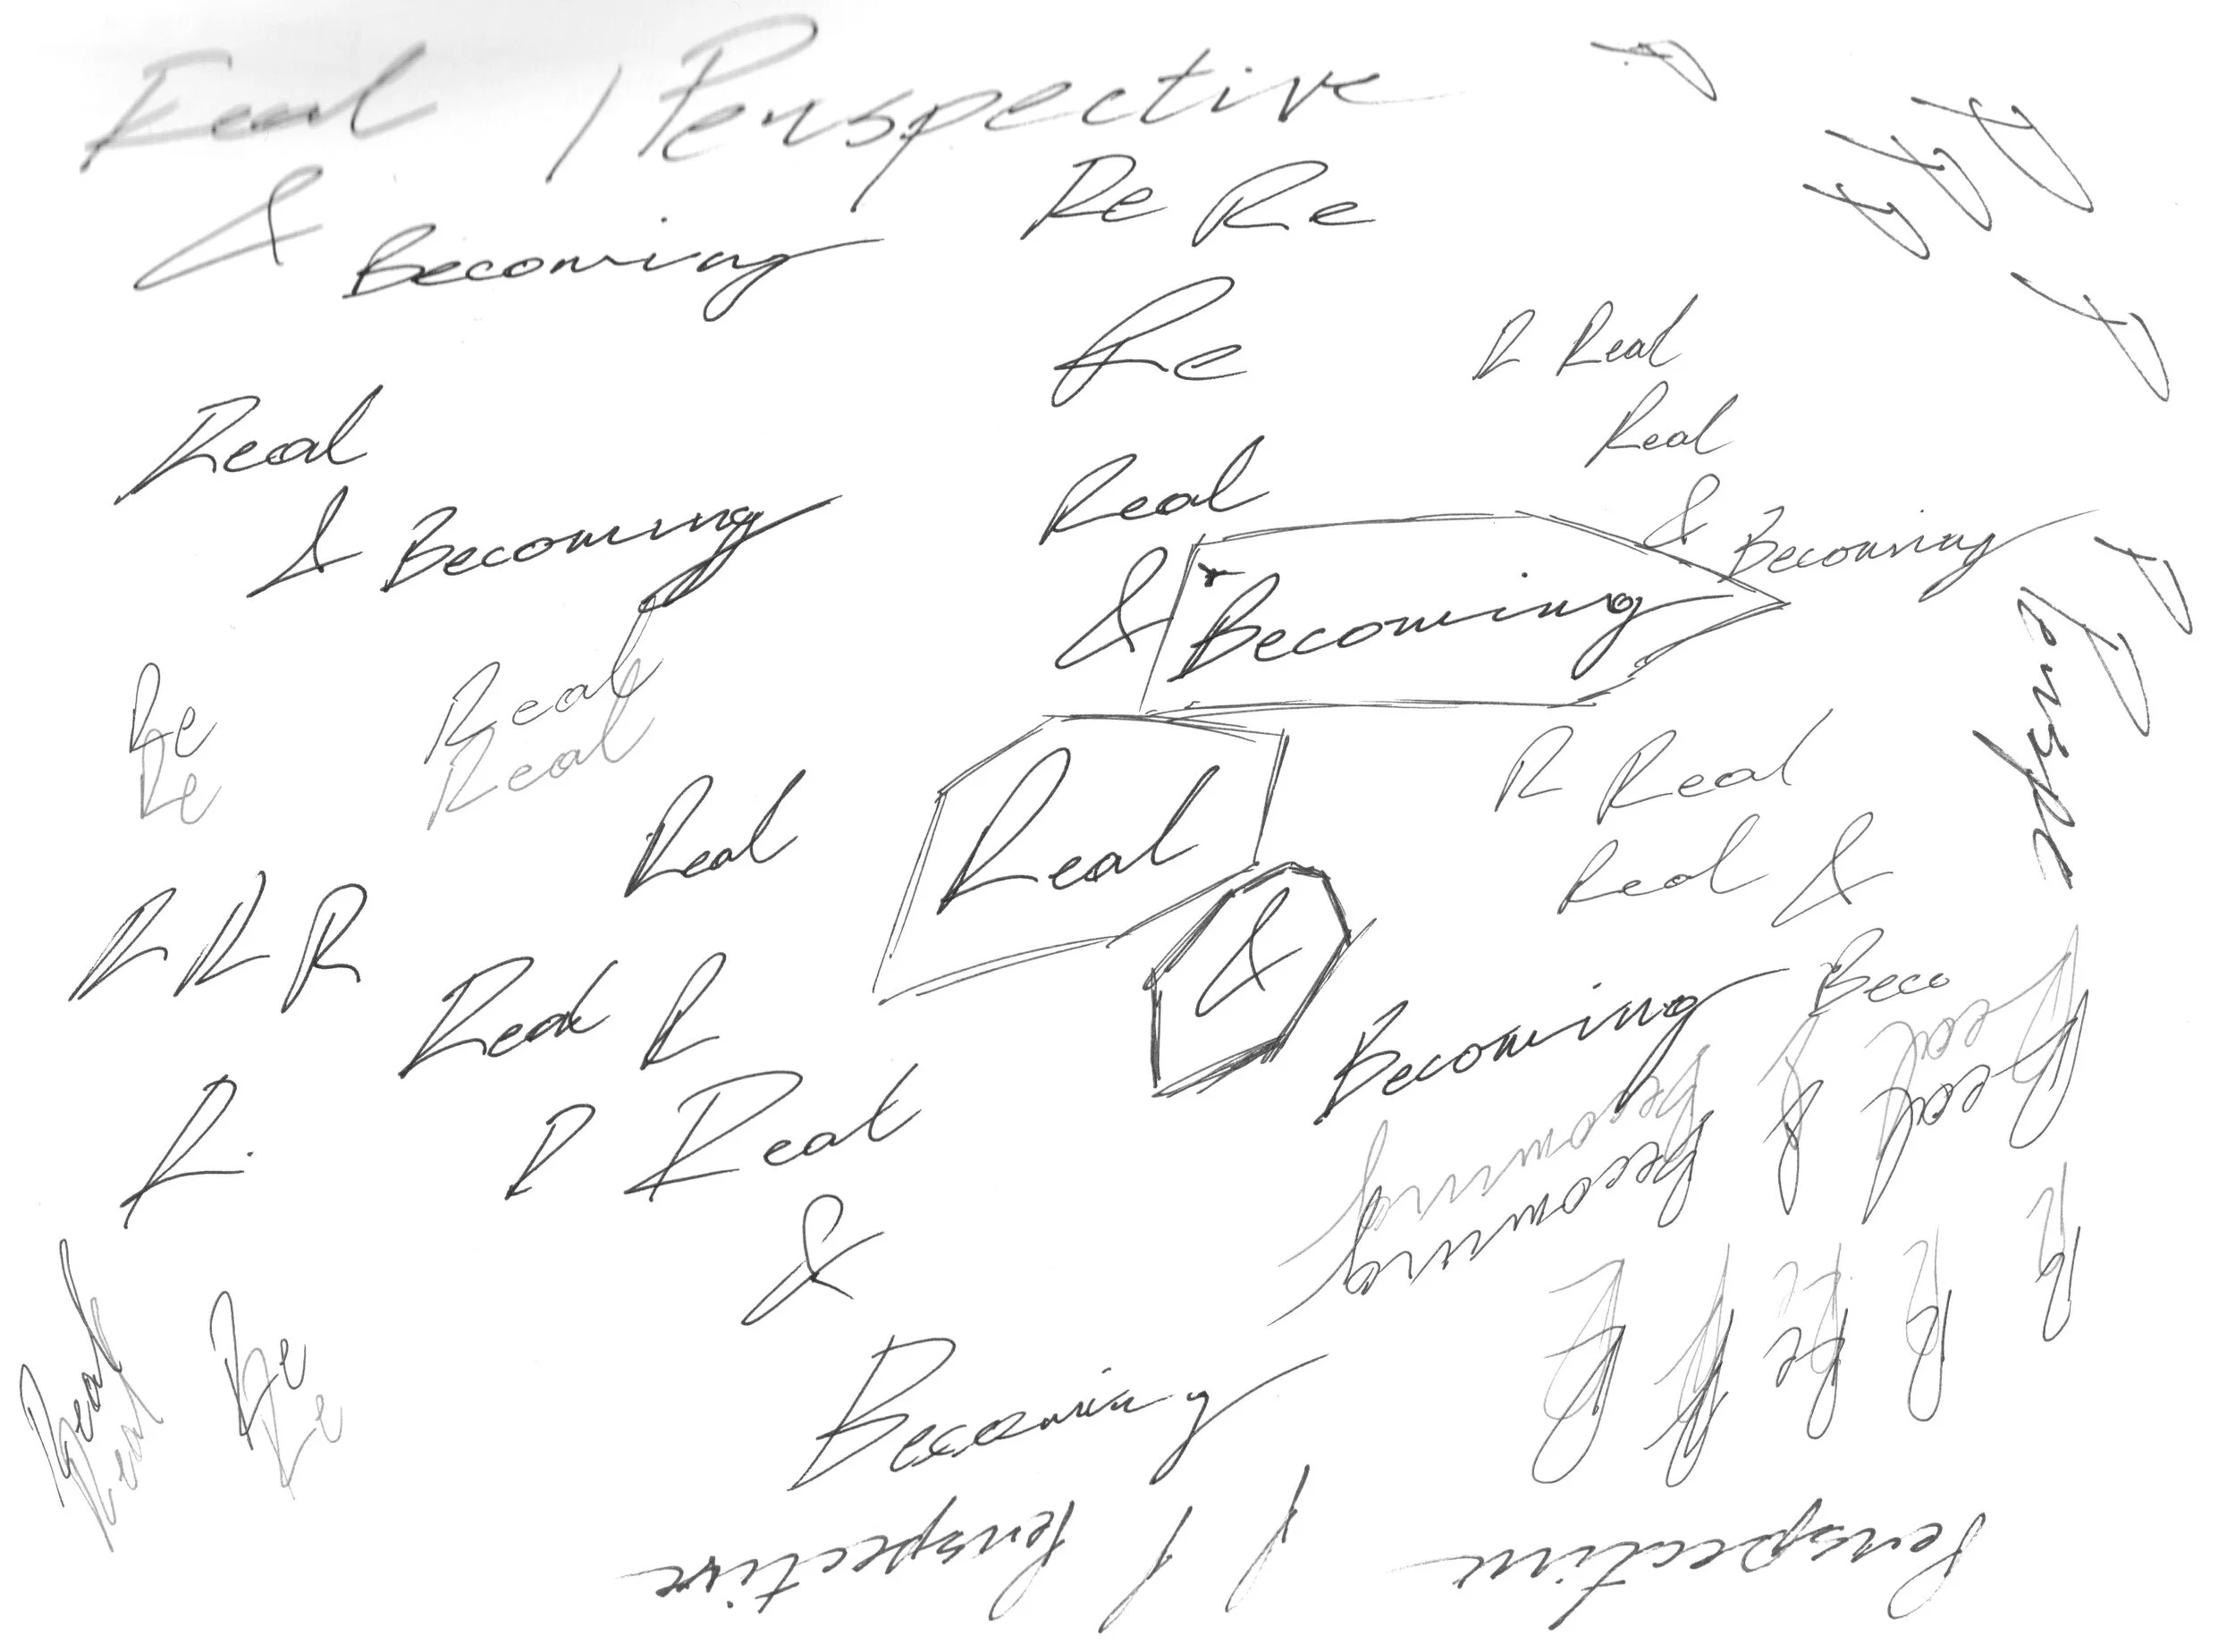 Real / Perspective
& Becoming
Re Re
Re
R Real
Real
& Becoming
Real
& Becoming
Real
& Becoming
Re
Re
Real
Real
Real
Real
&
R Real
Real &
R R R
Real R
Becoming
Beco
Real
Real
Becoming
Becoming
&
R.
R Real
&
Becoming
Real
Real
Re
Re
Perspective
Perspective